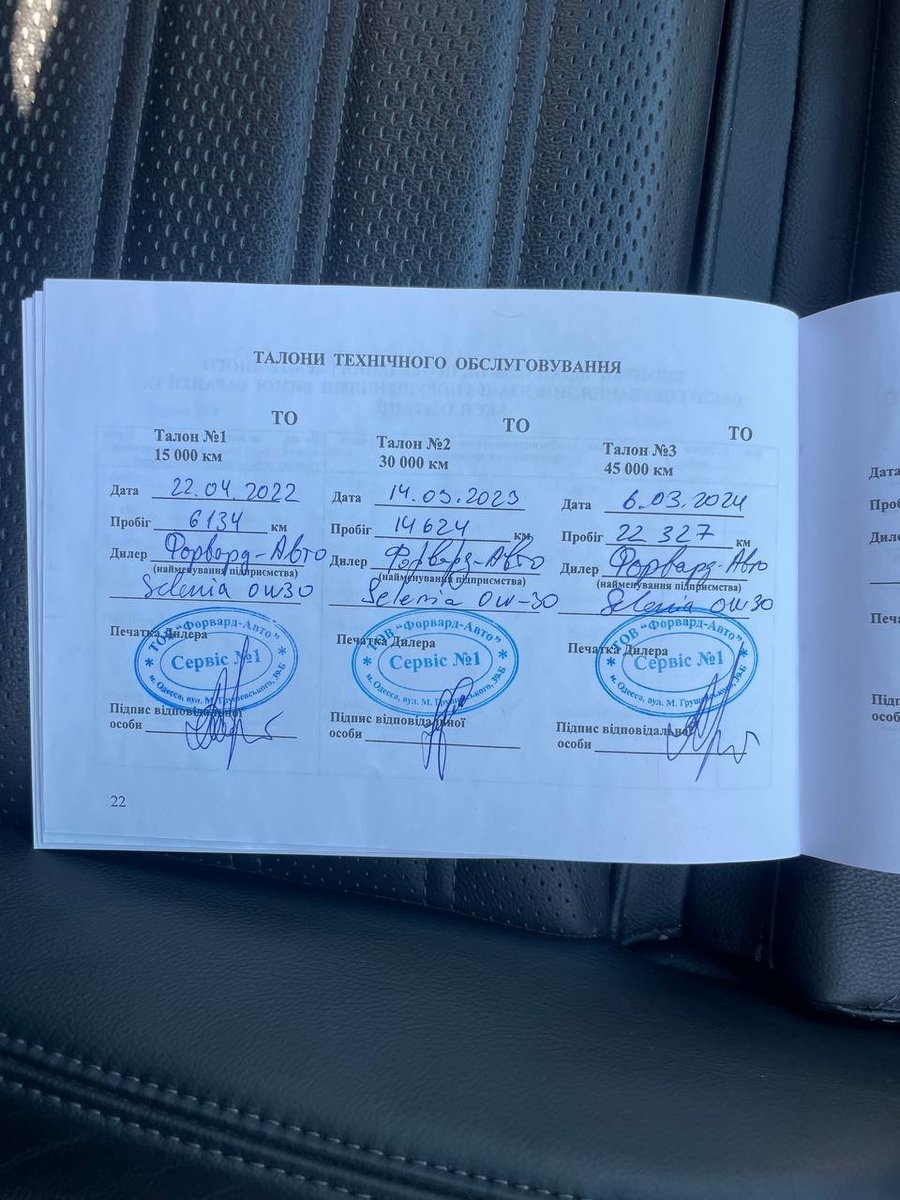 ТАЛОНИ ТЕХНІЧНОГО ОБСЛУГОВУВАННЯ
ТО
Талон №1
15 000 км
Дата 22.04.2022
Пробіг 6134 км
Дилер Форвард-Авто
(найменування підприємства)
Selenia 0W30
Печатка Дилера
ТОВ "Форвард-Авто"
Сервіс №1
м. Одеса, вул. М. Грушевського, 39-Б
Підпис відповідальної
особи
ТО
Талон №2
30 000 км
Дата 14.03.2023
Пробіг 14624 км
Дилер Форвард-Авто
(найменування підприємства)
Selenia 0W-30
Печатка Дилера
ТОВ "Форвард-Авто"
Сервіс №1
м. Одеса, вул. М. Грушевського, 39-Б
Підпис відповідальної
особи
ТО
Талон №3
45 000 км
Дата 6.03.2024
Пробіг 22 327 км
Дилер Форвард-Авто
(найменування підприємства)
Selenia 0W30
Печатка Дилера
ТОВ "Форвард-Авто"
Сервіс №1
м. Одеса, вул. М. Грушевського, 39-Б
Підпис відповідальної
особи
22
Дата